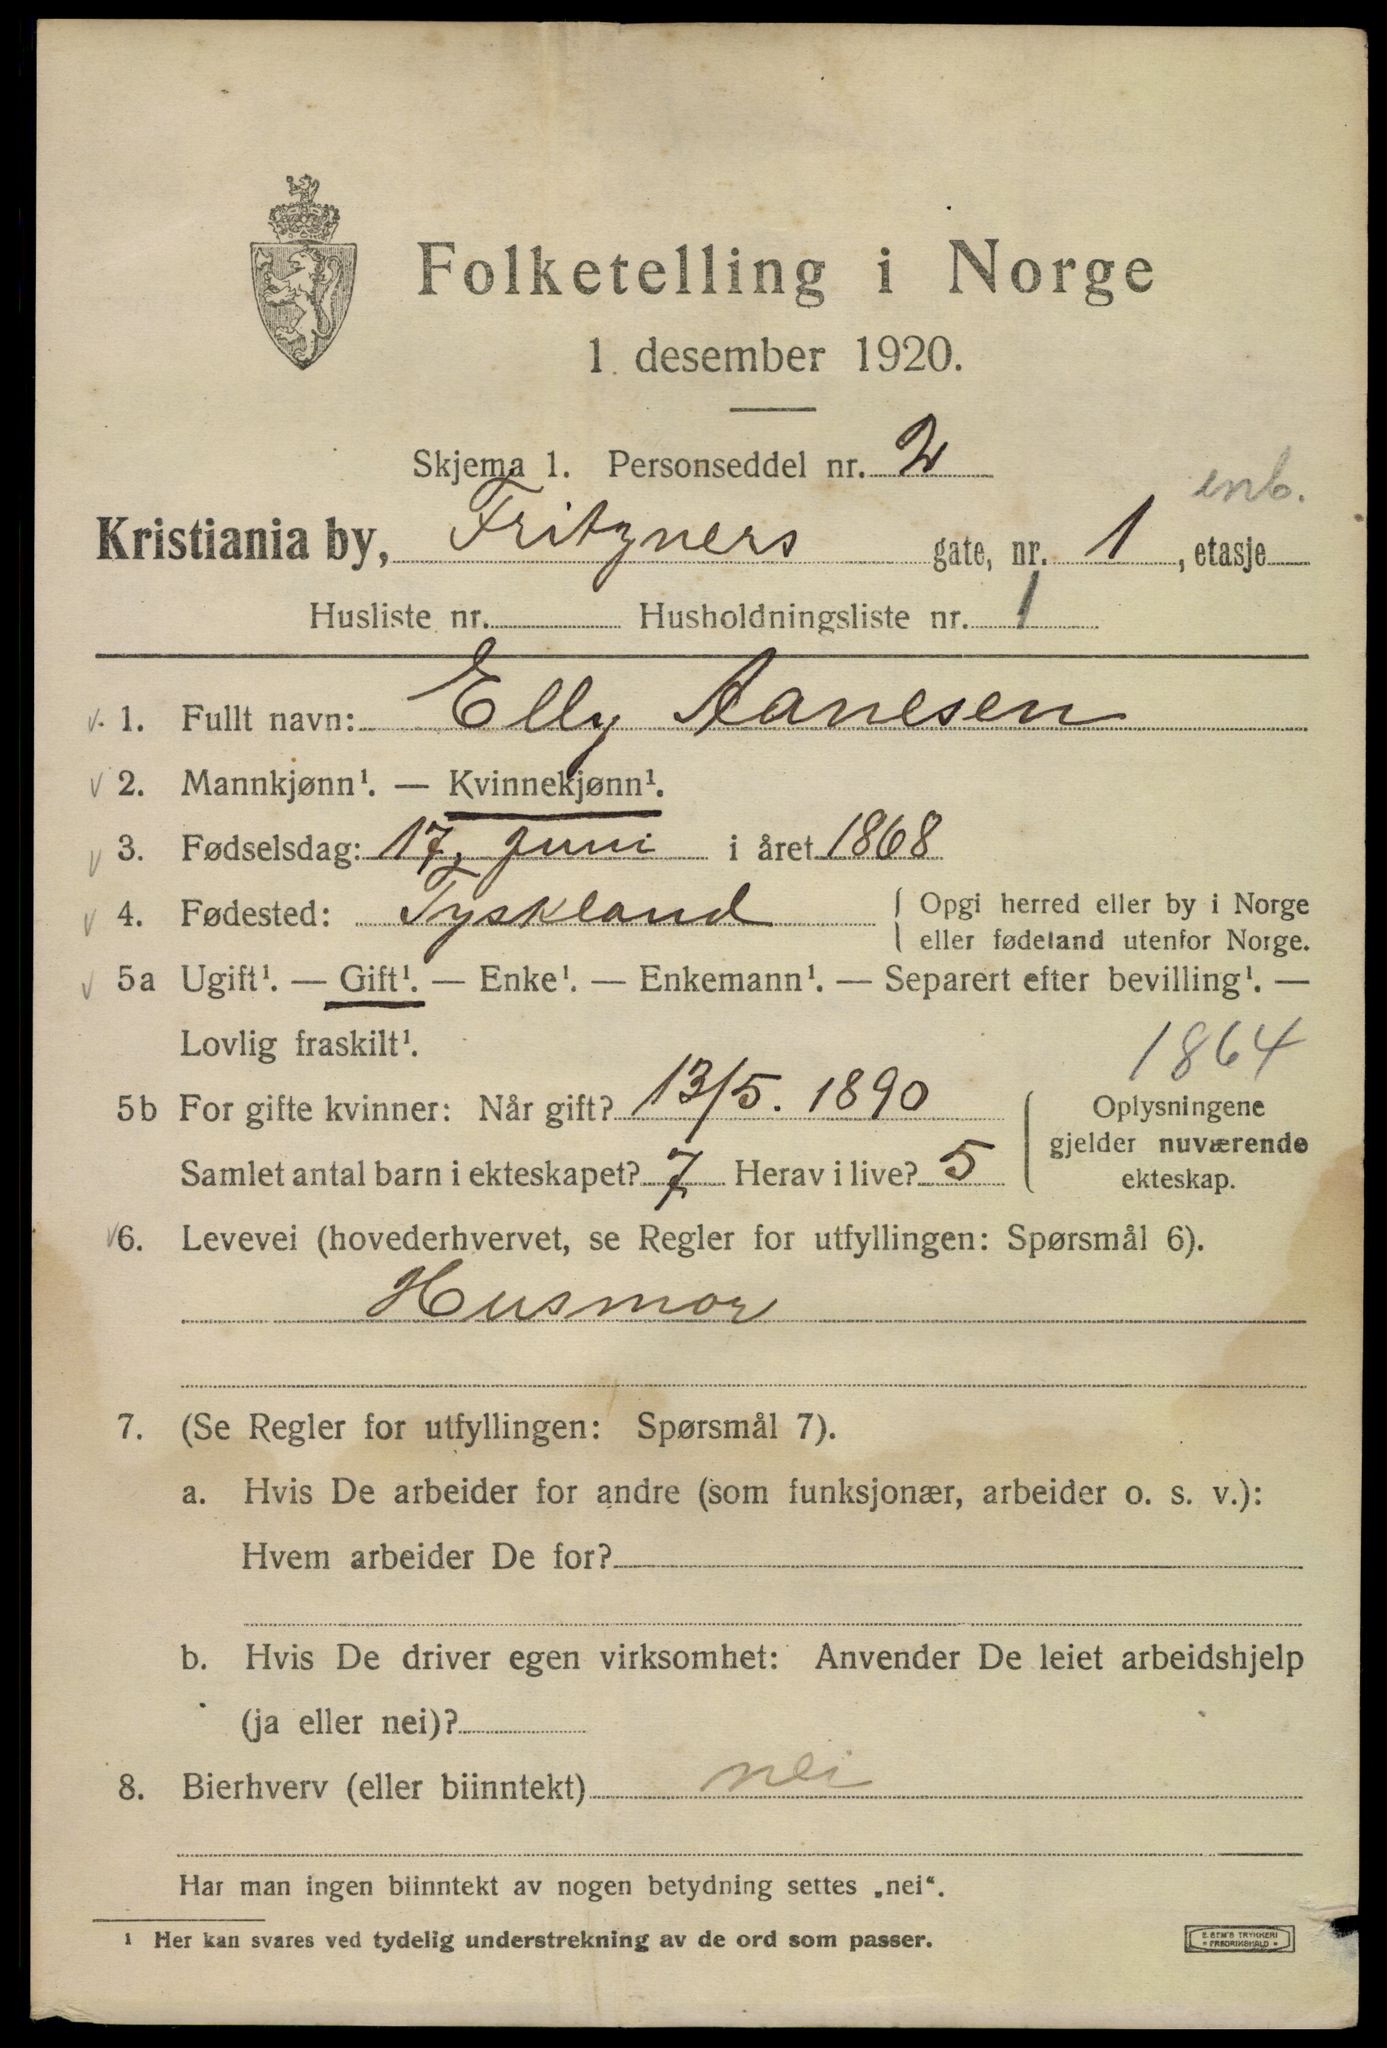 Folketelling i Norge
1. desember 1920.
Skjema 1. Personseddel nr. 2
enb.
Kristiania by, Fritzners gate, nr. 1, etasje
Husliste nr. Husholdningsliste nr. 1
v. 1. Fullt navn: Elly Aanesen
v 2. Mannkjønn¹. — Kvinnekjønn¹.
v 3. Fødselsdag: 17. juni i året 1868
v 4. Fødested: Tyskland { Opgi herred eller by i Norge
eller fødeland utenfor Norge.
v 5a Ugift¹. — Gift¹. — Enke¹. — Enkemann¹. — Separert efter bevilling¹. —
Lovlig fraskilt¹.
1864
5b For gifte kvinner: Når gift? 13/5. 1890
Samlet antal barn i ekteskapet? 7 Herav i live? 5
{ Oplysningene
gjelder nuværende
ekteskap.
v 6. Levevei (hovederhvervet, se Regler for utfyllingen: Spørsmål 6).
Husmor
7. (Se Regler for utfyllingen: Spørsmål 7).
a. Hvis De arbeider for andre (som funksjonær, arbeider o. s. v.):
Hvem arbeider De for?
b. Hvis De driver egen virksomhet: Anvender De leiet arbeidshjelp
(ja eller nei)?
8. Bierhverv (eller biinntekt) nei
Har man ingen biinntekt av nogen betydning settes „nei“.
¹ Her kan svares ved tydelig understrekning av de ord som passer.
E. SEM'S TRYKKERI
• FREDRIKSHALD •